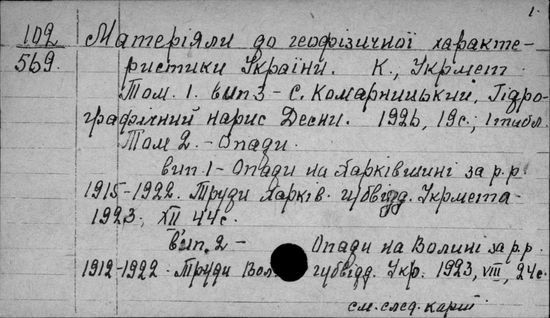 1.
102 Матеріяли до геофізичної характе-
569. ристики України. К., Укрмет
Том. 1. вип 3 - С. Комарницький, Гідро-
графічний нарис Десни. 1926, 19с., 1 табл.
Том 2. - Опади.
вип. 1 - Опади на Харківшині за р.р.
1915-1922. Труди Харків. губвідд. Укрмета
1923, XII 44с.
вип. 2 - Опади на Волині за р.р.
1912-1922. Труди Вол губвідд. Укр. 1923, VIII, 24с.
см. след. карт